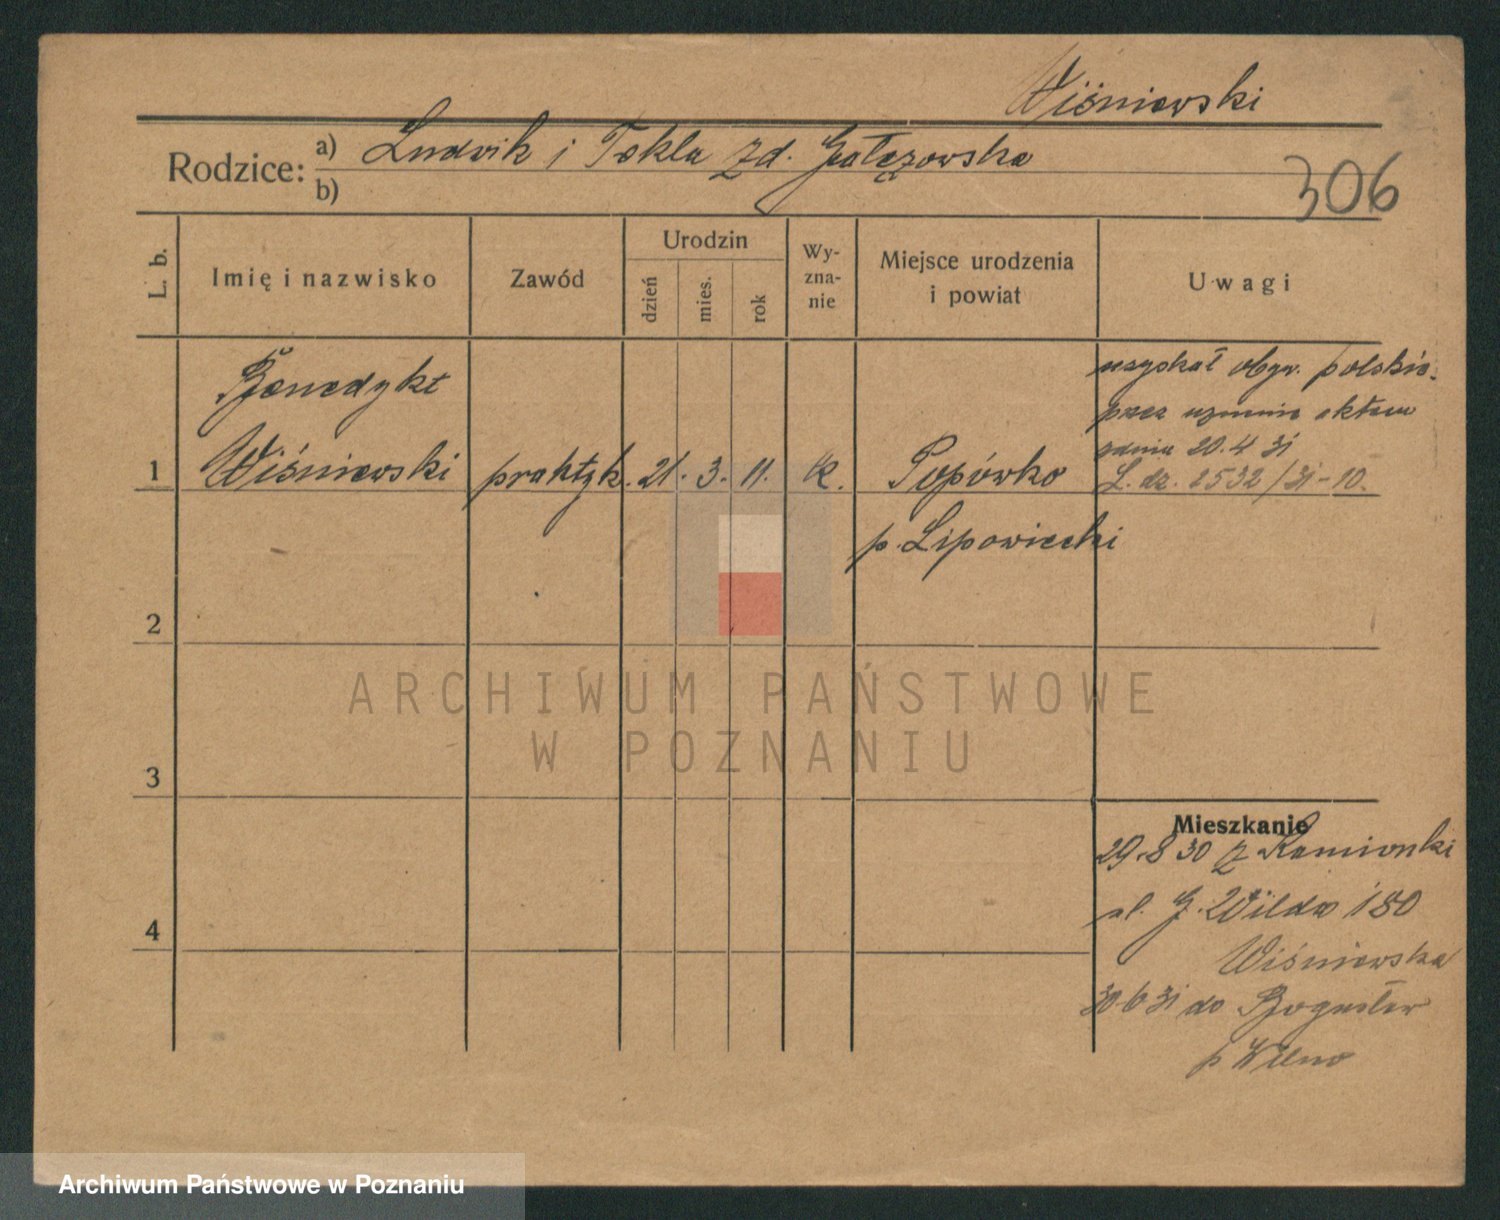 Wiśniewski
Rodzice: a) Ludwik i Tekla zd. Gałęzowska
b)
306
L. b.
Imię i nazwisko
Zawód
Urodzin
dzień
mies.
rok
Wy-
zna-
nie
Miejsce urodzenia
i powiat
Uwagi
Benedykt
1 Wiśniewski praktyk. 21. 3. 11. k. Popówko
p. Lipowiecki
uzyskał obyw. polskie.
przez uznanie aktem
z dnia 20.4 31
L. dz. 2532/31-10.
2
3
4
Mieszkanie
29.8 30 z Kamionki
ul. G. Wilda 180
Wiśniewska
30.6 31 do Bogusław
p Wilno
ARCHIWUM PAŃSTWOWE
W POZNANIU
Archiwum Państwowe w Poznaniu